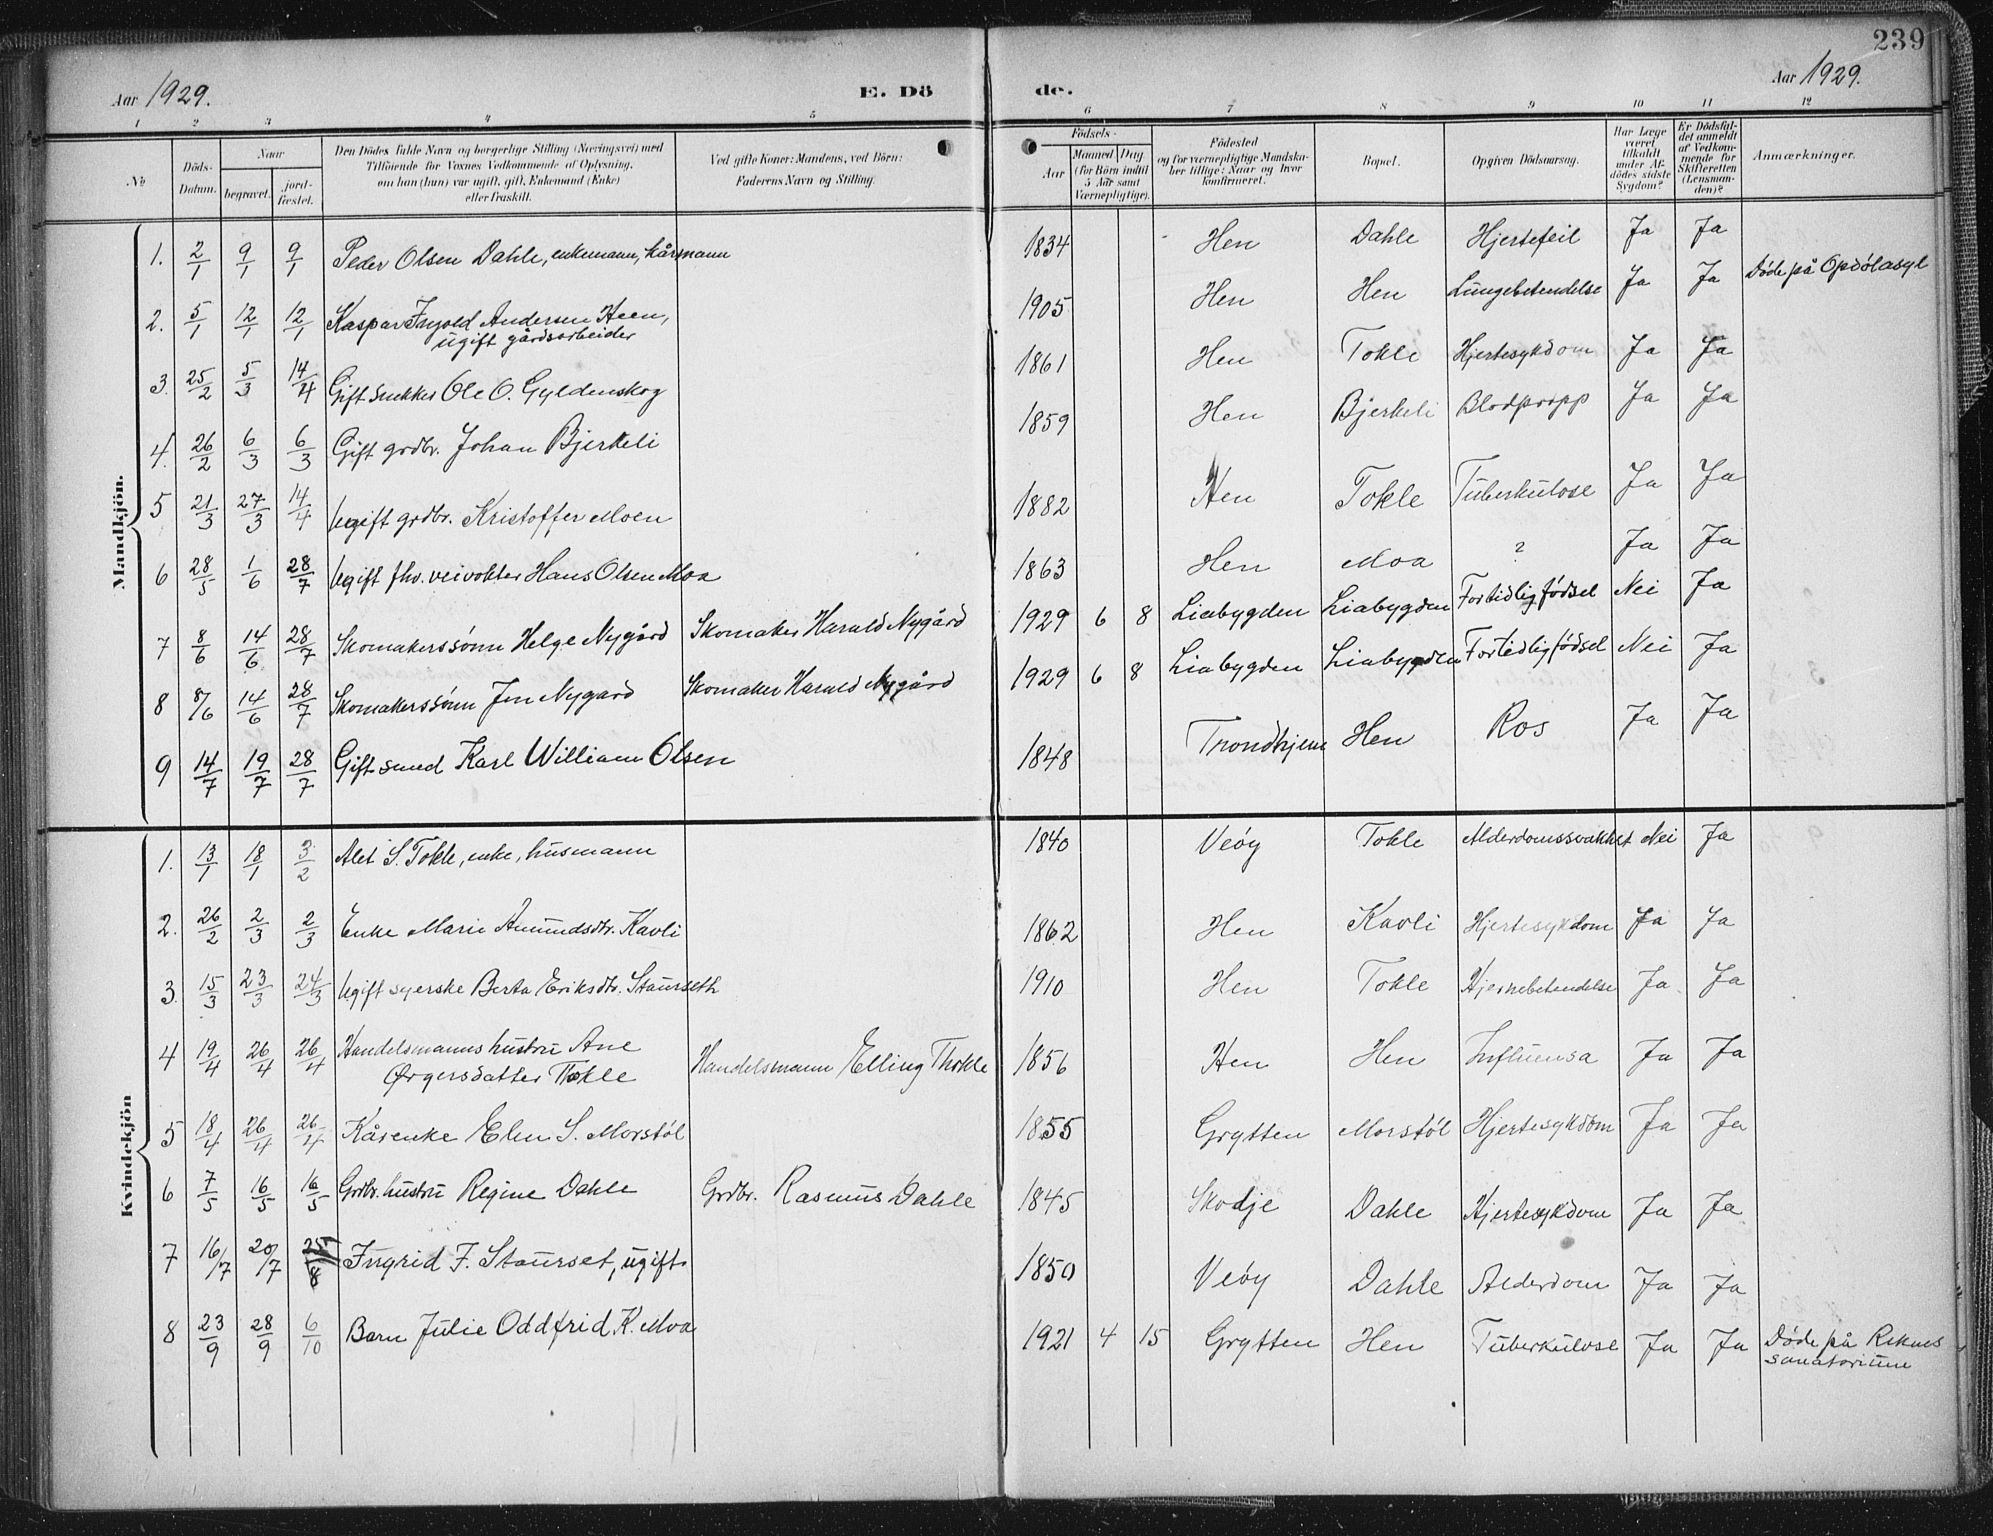 239
Aar 1929. E. Dö de. Aar 1929.
1 2 3 4 5 6 7 8 9 10 11 12
No
Döds-Datum.
Naar
begravet.
jord-fæstet.
Den Dödes fulde Navn og borgerlige Stilling (Næringsvei) med
Tilföiende for Voxnes Vedkommende af Oplysning,
om han (hun) var ugift, gift, Enkemand (Enke)
eller fraskilt.
Ved gifte Koner: Mandens, ved Börn:
Faderens Navn og Stilling.
Födsels-
Aar
Maaned Dag
(for Börn indtil
5 Aar samt
Værnepligtige).
Födested
og for værnepligtige Mandska-
ber tillige: Naar og hvor
konfirmeret.
Bopæl.
Opgiven Dödsaarsag.
Har Læge
været
tilkaldt
under Af-
dödes sidste
Sygdom?
Er Dödsfal-
det anmeldt
af Vedkom-
mende for
Skifteretten
(Lensman-
den)?
Anmærkninger.
Mandkjön.
1. 2/1 9/1 9/1 Peder Olsen Dahle, enkemann, kårmann 1834 Hen Dahle Hjertefeil Ja Ja
2. 5/1 12/1 12/1 Kaspar Ingold Andersen Heen, ugift gårdsarbeider 1905 Hen Hen Lungebetendelse Ja Ja Døde på Opdølasyl
3. 25/2 5/3 14/4 Gift snekker Ole O. Gyldenskog 1861 Hen Tokle Hjertesykdom Ja Ja
4. 26/2 6/3 6/3 Gift grdbr. Johan Bjerkeli 1859 Hen Bjerkeli Blodpropp Ja Ja
5 21/3 27/3 14/4 Ugift grdbr. Kristoffer Moen 1882 Hen Tokle Tuberkulose Ja Ja
6 28/5 1/6 28/7 Ugift fhv. veivokter Hans Olsen Moa 1863 Hen Moa ? Ja Ja
7 8/6 14/6 28/7 Skomakerssønn Helge Nygård Skomaker Harald Nygård 1929 6 8 Liabygden Liabygden Fortidlig fødsel Nei Ja
8 8/6 14/6 28/7 Skomakerssønn Jon Nygard Skomaker Harald Nygård 1929 6 8 Liabygden Liabygden Fortidlig fødsel Nei Ja
9 14/7 19/7 28/7 Gift smed Karl William Olsen 1848 Trondhjem Hen Ros Ja Ja
Kvindekjön
1. 13/1 18/1 3/2 Alet S. Tokle, enke, husmann 1840 Veøy Tokle Alderdomssvakhet Nei Ja
2. 26/2 2/3 2/3 Enke Marie Amundsdtr. Kavli 1862 Hen Kavli Hjertesykdom Ja Ja
3. 15/3 23/3 24/3 Ugift syerske Berta Eriksdtr. Staurseth 1910 Hen Tokle Hjernebetendelse Ja Ja
4 19/4 26/4 26/4 Handelsmanns hustru Ane Ørgersdatter Tokle Handelsmann Elling Thokle 1856 Hen Hen Influensa Ja Ja
5 18/4 26/4 26/4 Kårenke Elen S. Morstøl 1855 Grytten Morstøl Hjertesykdom Ja Ja
6 7/5 16/5 16/5 Grdbr. hustru Regine Dahle Grdbr. Rasmus Dahle 1845 Skodje Dahle Hjertesykdom Ja Ja
7 16/7 20/7 25/8 Ingrid F. Staurset, ugift 1850 Veøy Dahle Alderdom Ja Ja
8 23/9 28/9 6/10 Barn Julie Oddfrid K. Moa 1921 4 15 Grytten Hen Tuberkulose Ja Ja Døde på Reknes sanatorium